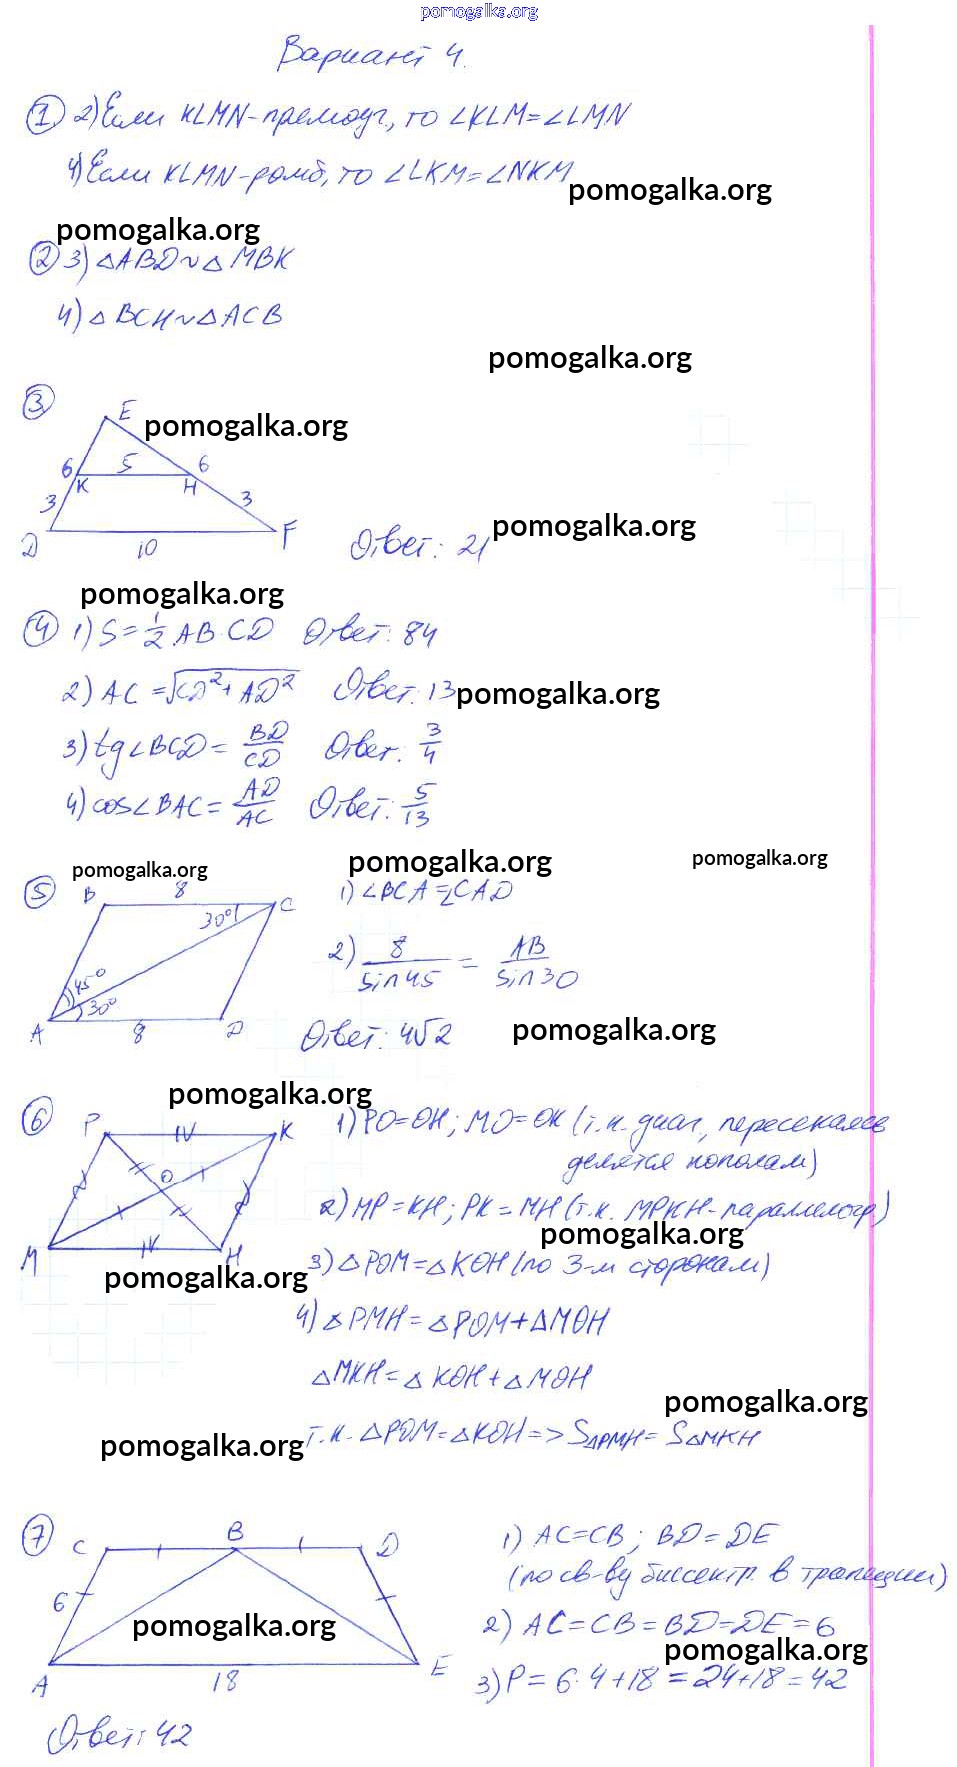 pomogalka.org
Вариант 4.
① 2) Если KLMN-прямоуг., то ∠KLM=∠LMN
4) Если KLMN-ромб, то ∠LKM=∠NKM
pomogalka.org
pomogalka.org
② 3) △ABD∾△MBK
4) △BCH∾△ACB
pomogalka.org
③
E
pomogalka.org
6 5 6
K H
3 3
D 10 F
Ответ: 21
pomogalka.org
pomogalka.org
④ 1) S=1/2 AB·CD Ответ: 84
2) AC=√CD²+AD² Ответ: 13
pomogalka.org
3) tg∠BCD= BD/CD Ответ: 3/4
4) cos∠BAC= AD/AC Ответ: 5/13
pomogalka.org pomogalka.org pomogalka.org
⑤ B 8 C
30°
45°
30°
A 8 D
1) ∠BCA=∠CAD
2) 8/sin45 = AB/sin30
Ответ: 4√2
pomogalka.org
pomogalka.org
⑥ P K
O
M H
1) PO=OH; MO=OK (т.к. диаг, пересекаясь
делятся пополам)
2) MP=KH; PK=MH (т.к. MPKH-параллелогр)
pomogalka.org
3) △POM=△KOH (по 3-м сторонам)
pomogalka.org
4) △PMH=△POM+△MOH
△MKH=△KOH+△MOH
pomogalka.org
т.к. △POM=△KOH=>S△PMH=S△MKH
pomogalka.org
⑦ C B D
6
A 18 E
pomogalka.org
1) AC=CB; BD=DE
(по св-ву биссектр. в трапеции)
2) AC=CB=BD=DE=6
pomogalka.org
3) P=6·4+18=24+18=42
Ответ: 42